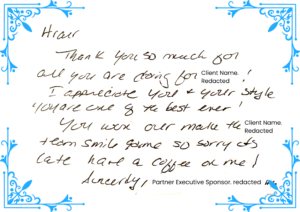 Thank you so much for
all you are doing for Client Name. Redacted !
I appreciate you & your style
You are one of the best ever!
You work over make the Client Name. Redacted
team smile so sorry its
late have a coffee on me!
Sincerely, Partner Executive Sponsor. redacted